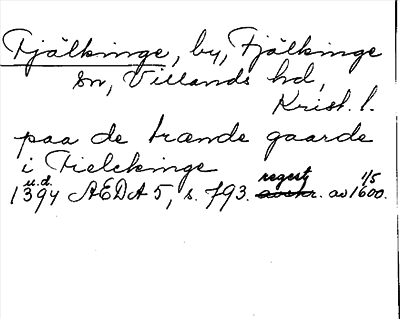 Fjälkinge, by, Fjälkinge
sn, Villands hd,
Krist. l.
paa de trænde gaarde
i Fielckinge
u.d. regest 1/5
1394 ÆDA 5, s. 793. avskr. av 1600.